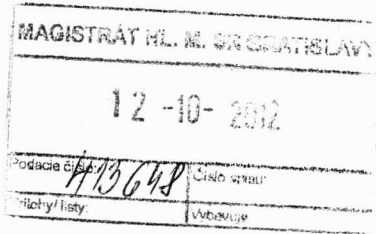 MAGISTRÁT HL. M. SR BRATISLAVY
12 -10- 2012
Podacie číslo: 413648 Číslo spisu:
Prílohy/listy: Vybavuje